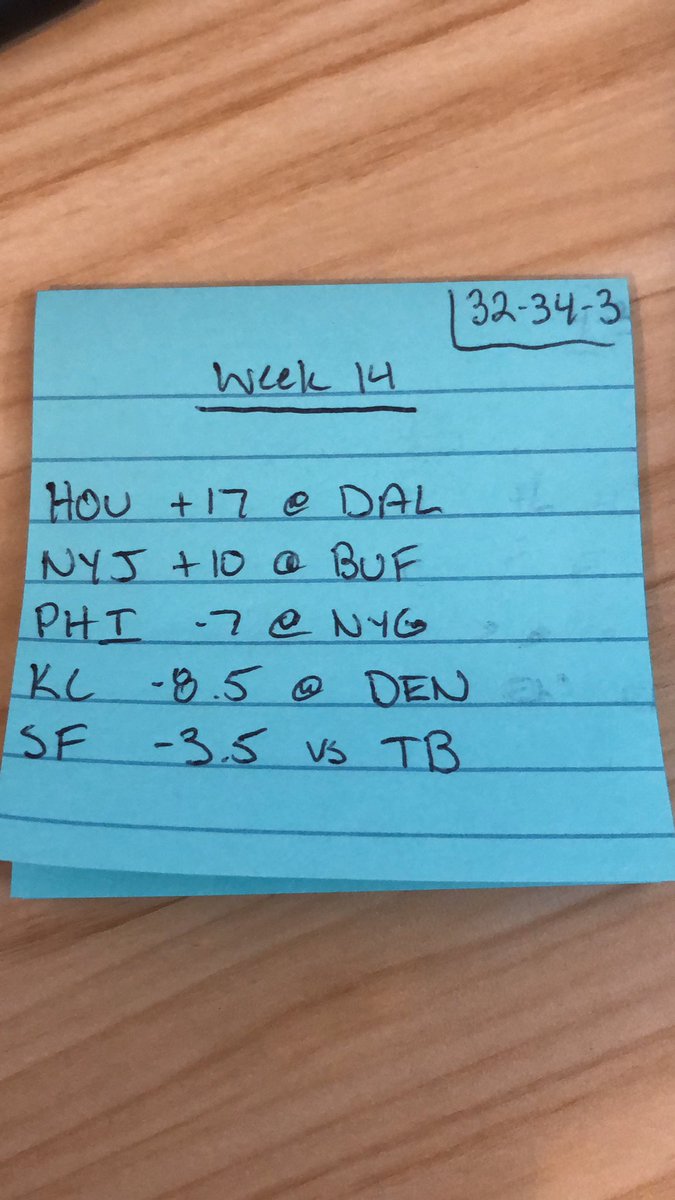 32-34-3
Week 14
HOU +17 @ DAL
NYJ +10 @ BUF
PHI -7 @ NYG
KC -8.5 @ DEN
SF -3.5 vs TB